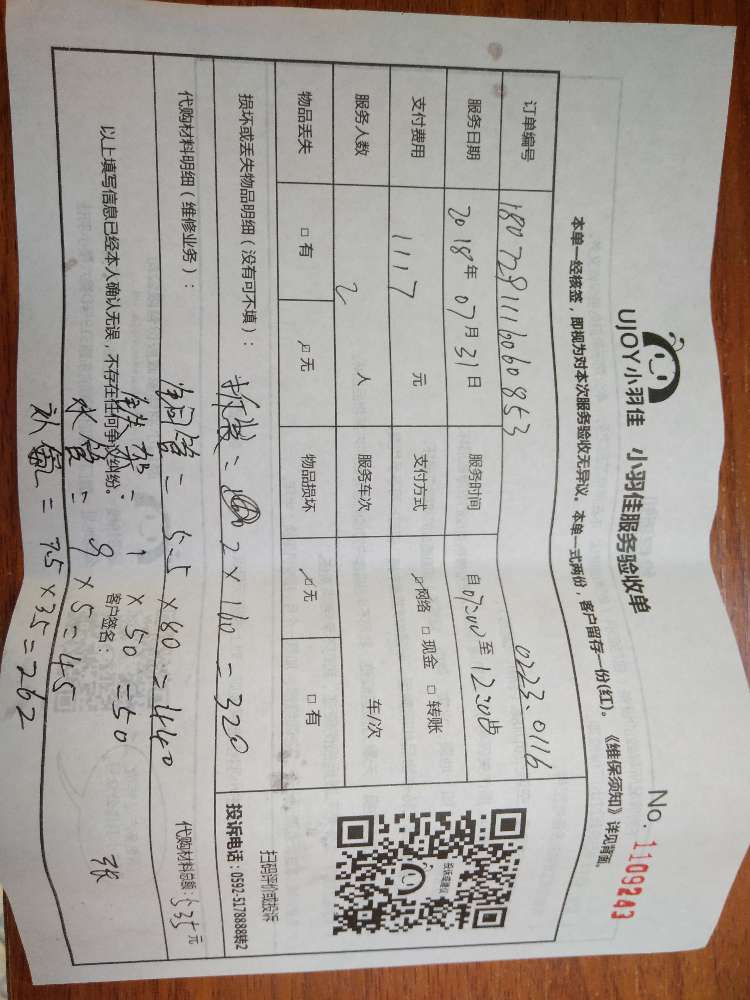 UJOY小羽佳 小羽佳服务验收单
No. 1109243
本单一经核签，即视为对本次服务验收无异议。本单一式两份，客户留存一份(红)。《维保须知》详见背面。
订单编号 1807291116060853 0223.0116
服务日期 2018年07月31日 服务时间 自07:00至12:00止
支付费用 1117 元 支付方式 网络 □现金 □转账
服务人数 2 人 服务车次 车/次
物品丢失 □有 无 物品损坏 无 □有
扫码评价或投诉
投诉电话：0592-5178888转2
损坏或丢失物品明细（没有可不填）：
拆装 = 2×160=320
代购材料明细（维修业务）： 铜管 = 5.5×80=440 代购材料总额：535元
铁架 = 1×50=50
以上填写信息已经本人确认无误，不存在任何争议纠纷。 客户签名： 张
水管 = 9×5=45
补氟 = 7.5×35=262